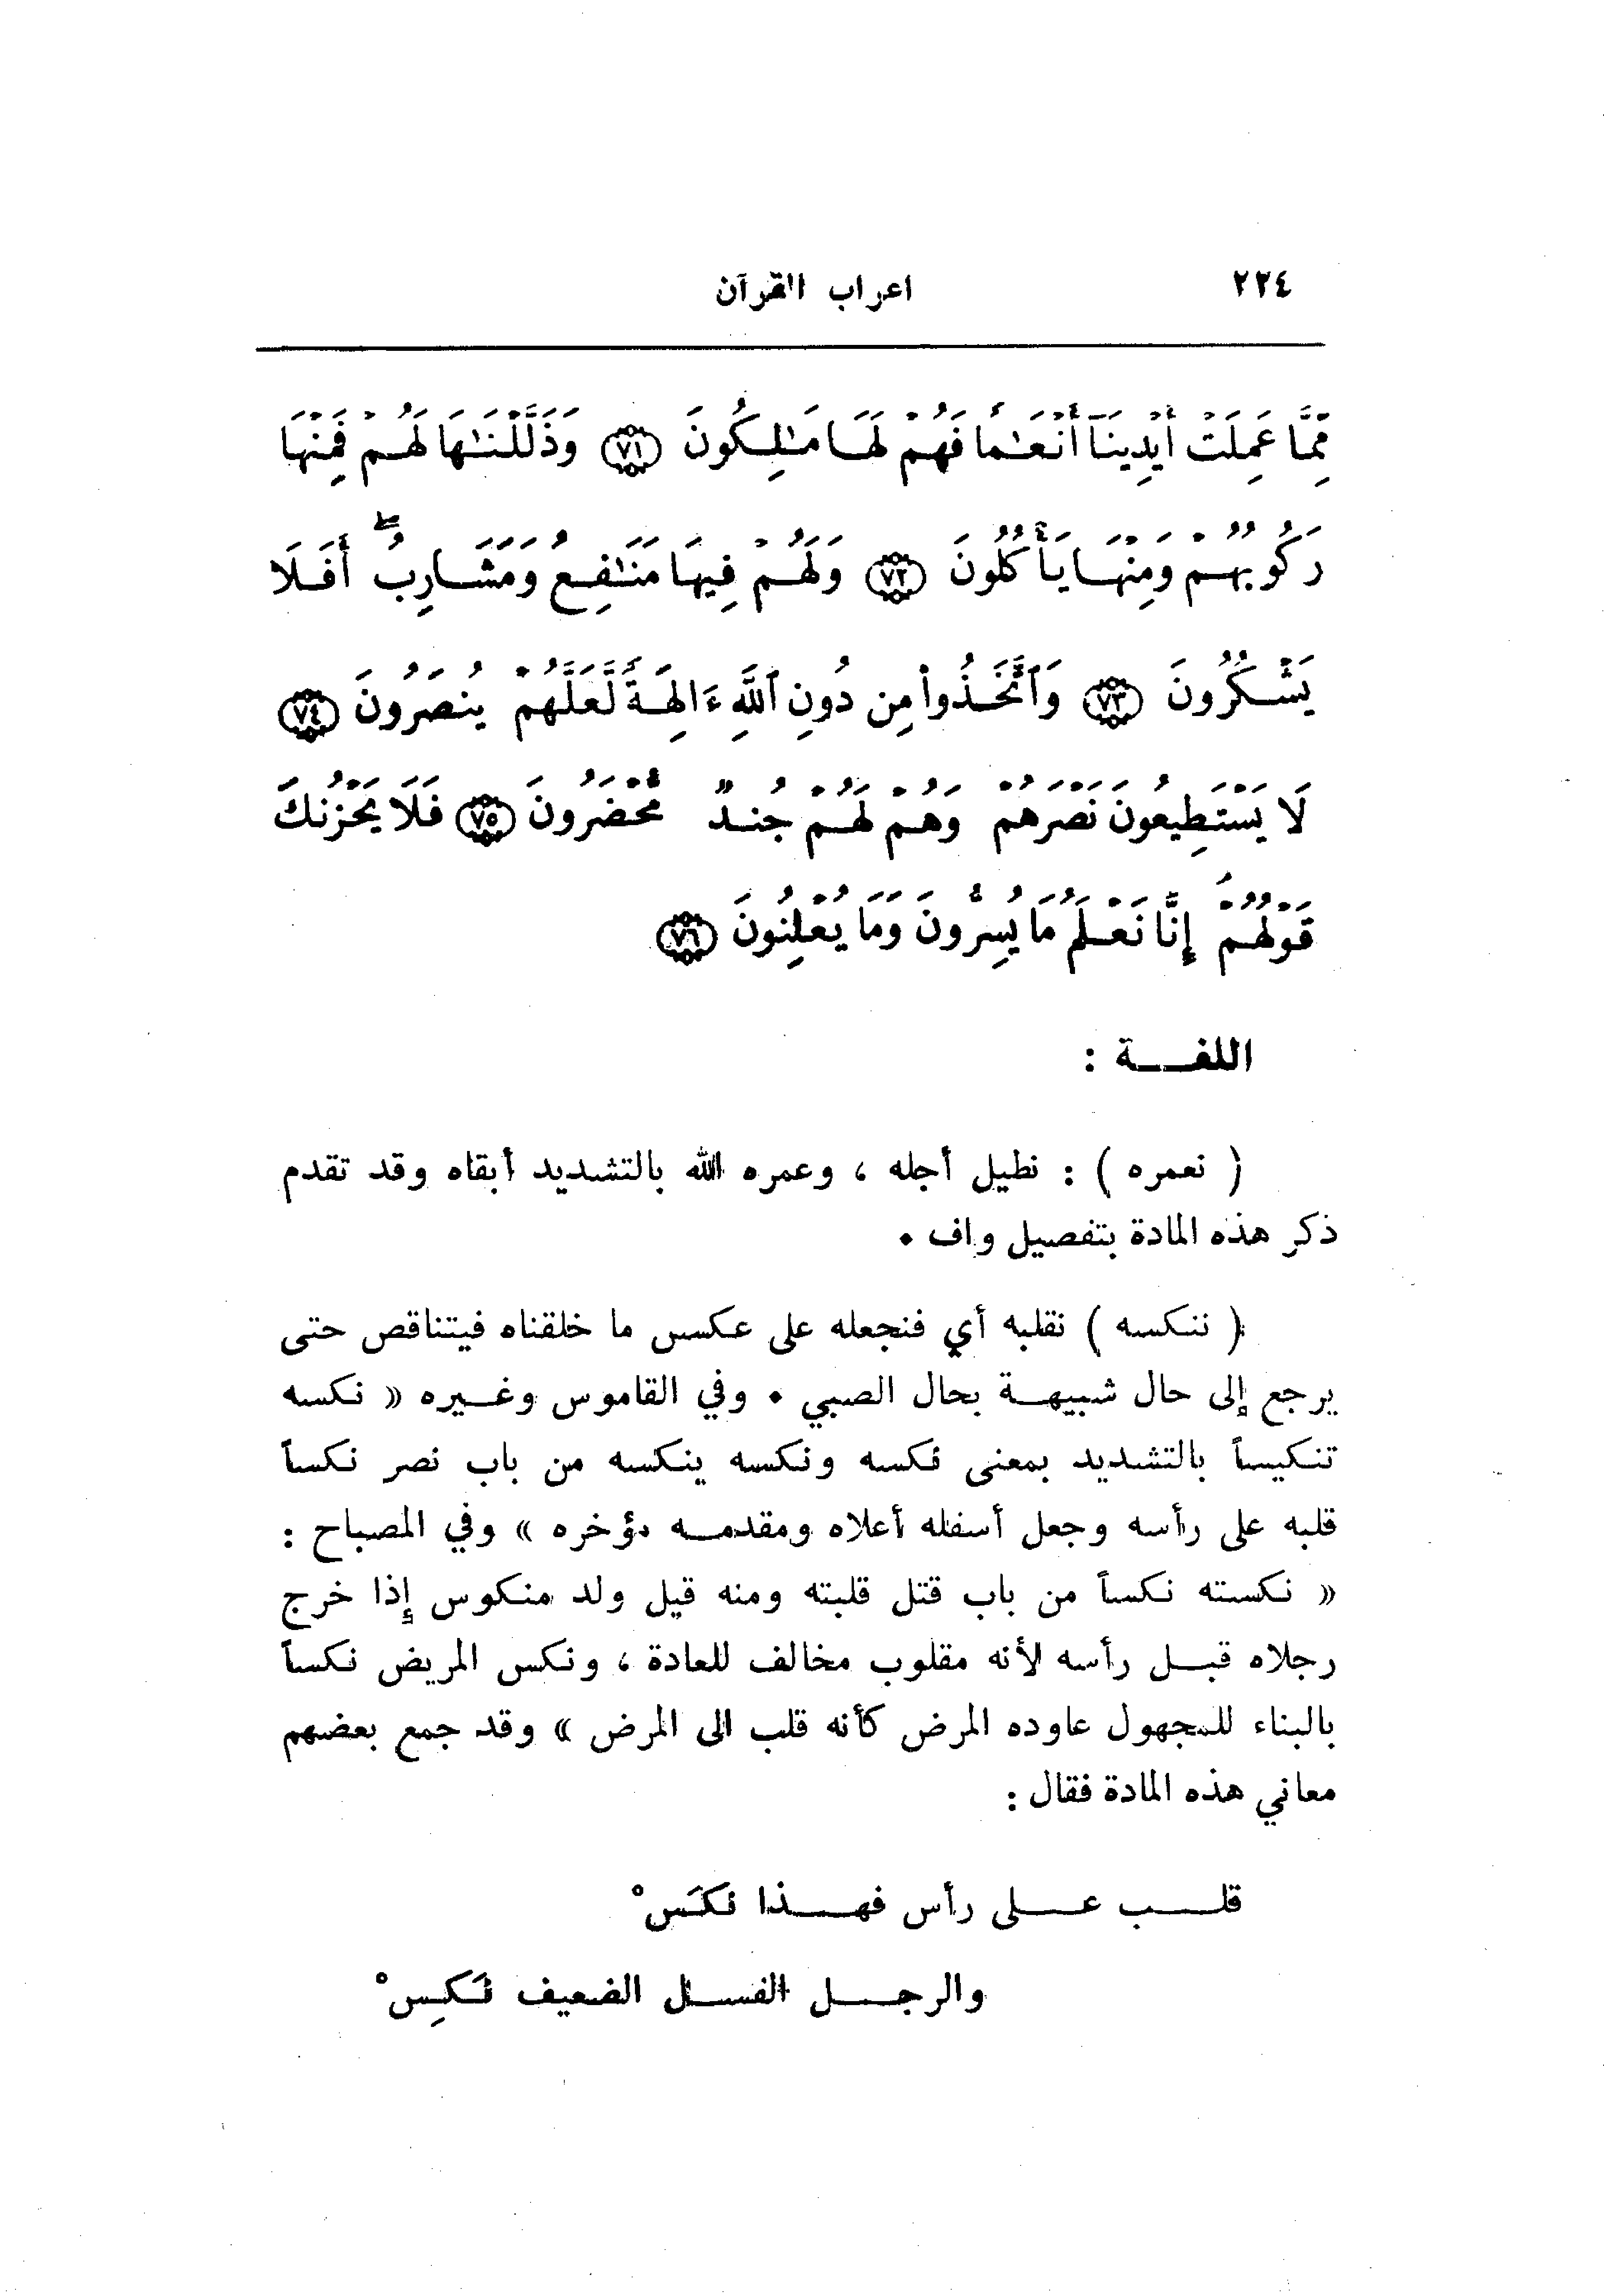 ٢٢٤ اعراب القرآن
مِّمَّا عَمِلَتْ أَيْدِينَآ أَنْعَٰمًا فَهُمْ لَهَا مَٰلِكُونَ ٧١ وَذَلَّلْنَٰهَا لَهُمْ فَمِنْهَا
رَكُوبُهُمْ وَمِنْهَا يَأْكُلُونَ ٧٢ وَلَهُمْ فِيهَا مَنَٰفِعُ وَمَشَارِبُ ۖ أَفَلَا
يَشْكُرُونَ ٧٣ وَٱتَّخَذُوا۟ مِن دُونِ ٱللَّهِ ءَالِهَةً لَّعَلَّهُمْ يُنصَرُونَ ٧٤
لَا يَسْتَطِيعُونَ نَصْرَهُمْ وَهُمْ لَهُمْ جُندٌ مُّحْضَرُونَ ٧٥ فَلَا يَحْزُنكَ
قَوْلُهُمْ ۘ إِنَّا نَعْلَمُ مَا يُسِرُّونَ وَمَا يُعْلِنُونَ ٧٦
اللغـــة :
( نعمره ) : نطيل أجله ، وعمره الله بالتشديد أبقاه وقد تقدم
ذكر هذه المادة بتفصيل واف ٠
( ننكسه ) نقلبه أي فنجعله على عكس ما خلقناه فيتناقص حتى
يرجع إلى حال شبيهـة بحال الصبي ٠ وفي القاموس وغيره « نكسه
تنكيساً بالتشديد بمعنى نكسه ونكسه ينكسه من باب نصر نكساً
قلبه على رأسه وجعل أسفله أعلاه ومقدمـه مؤخره » وفي المصباح :
« نكسته نكساً من باب قتل قلبته ومنه قيل ولد منكوس إذا خرج
رجلاه قبـل رأسه لأنه مقلوب مخالف للعادة ، ونكس المريض نكساً
بالبناء للمجهول عاوده المرض كأنه قلب الى المرض » وقد جمع بعضهم
معاني هذه المادة فقال :
قلـــب عـــلى رأس فهـــذا نكَسْ
والرجـــل الفســـل الضعيف نَكِسْ